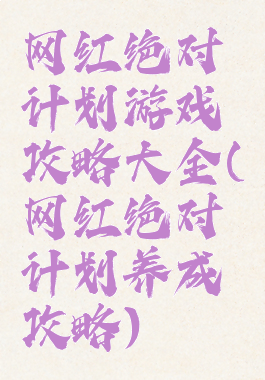 网红绝对
计划游戏
攻略大全(
网红绝对
计划养成
攻略)